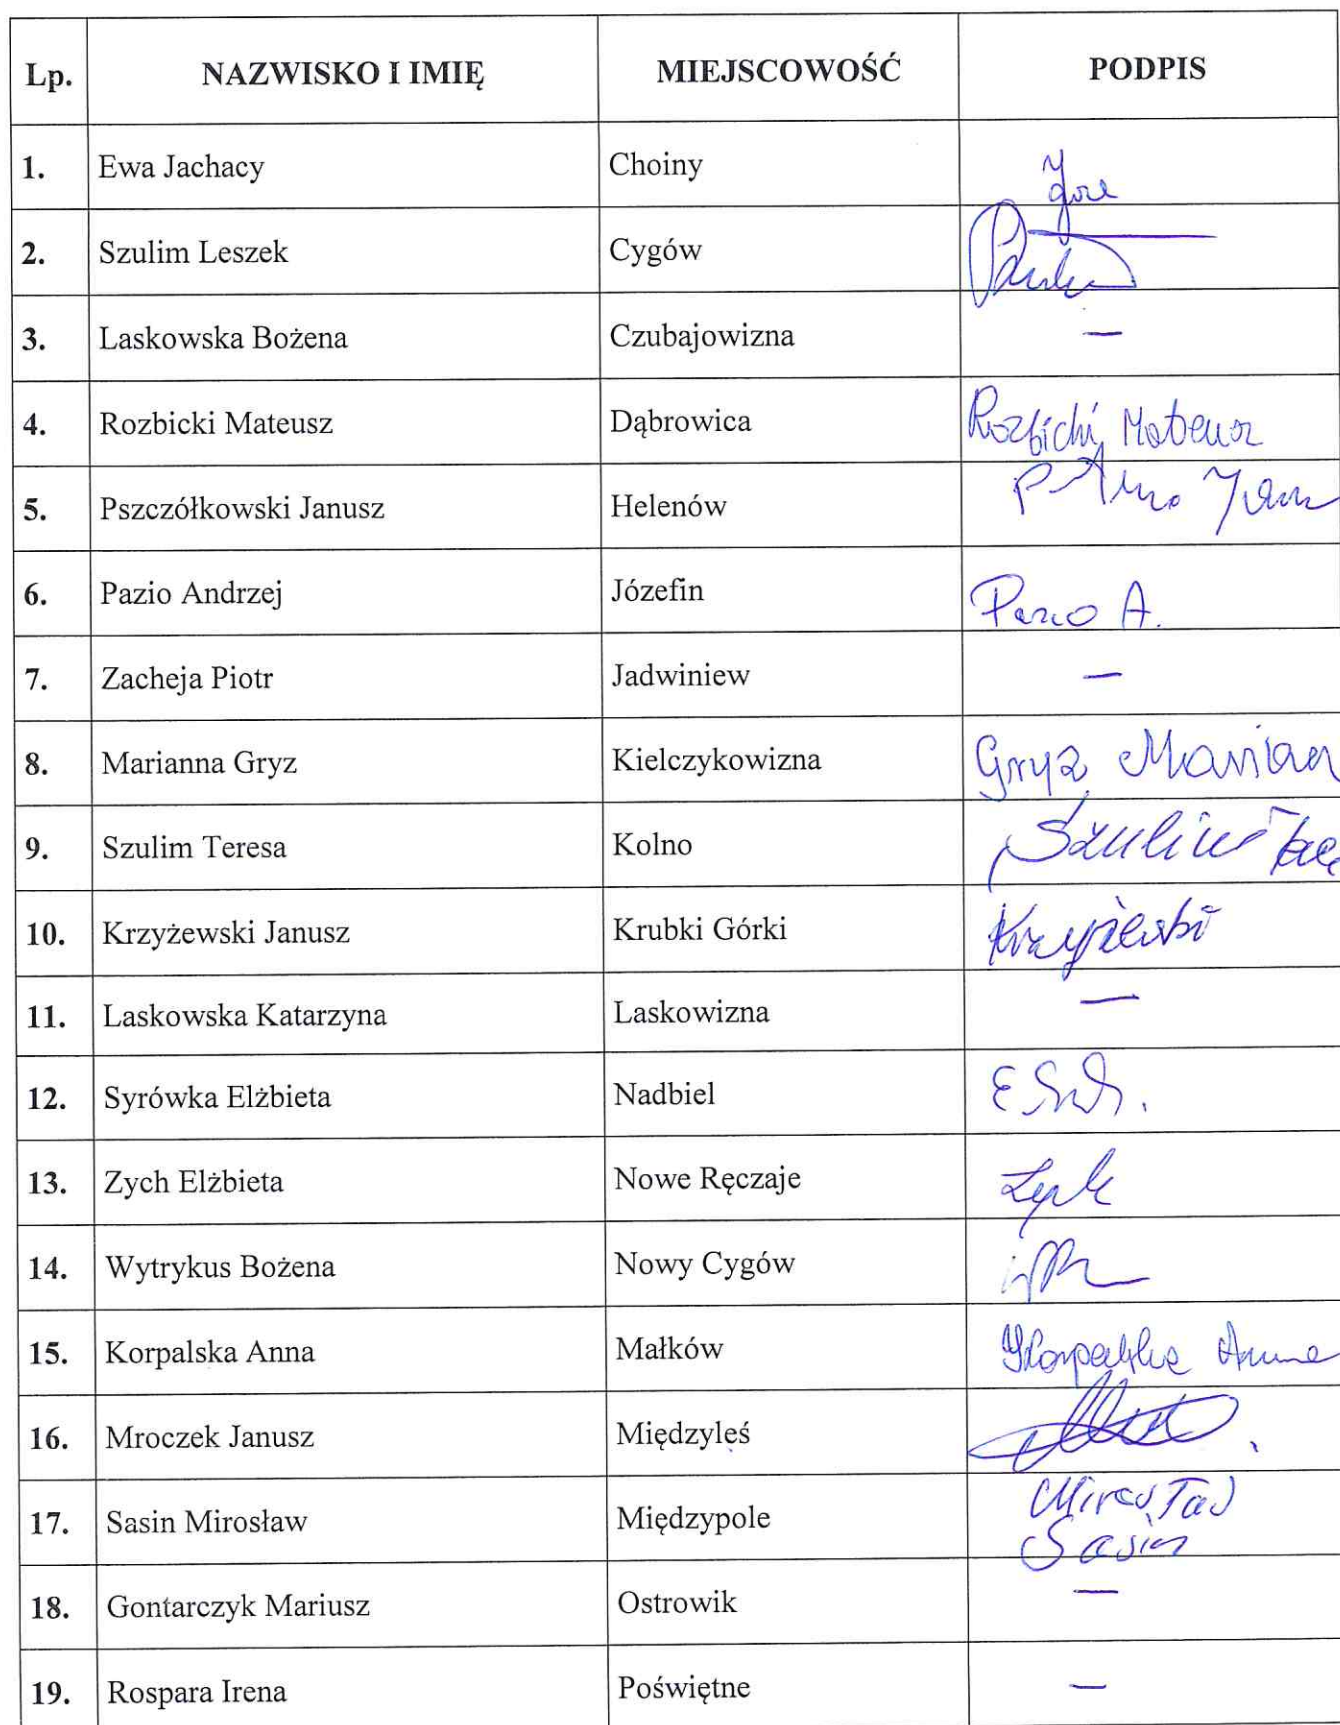 Lp. NAZWISKO I IMIĘ MIEJSCOWOŚĆ PODPIS
1. Ewa Jachacy Choiny
2. Szulim Leszek Cygów
3. Laskowska Bożena Czubajowizna —
4. Rozbicki Mateusz Dąbrowica Rozbicki Mateusz
5. Pszczółkowski Janusz Helenów
6. Pazio Andrzej Józefin Pazio A.
7. Zacheja Piotr Jadwiniew —
8. Marianna Gryz Kielczykowizna Gryz Marian
9. Szulim Teresa Kolno Szulim
10. Krzyżewski Janusz Krubki Górki Krzyżewski
11. Laskowska Katarzyna Laskowizna —
12. Syrówka Elżbieta Nadbiel
13. Zych Elżbieta Nowe Ręczaje
14. Wytrykus Bożena Nowy Cygów
15. Korpalska Anna Małków Korpalska Anna
16. Mroczek Janusz Międzyleś
17. Sasin Mirosław Międzypole Mirosław
Sasin
18. Gontarczyk Mariusz Ostrowik —
19. Rospara Irena Poświętne —